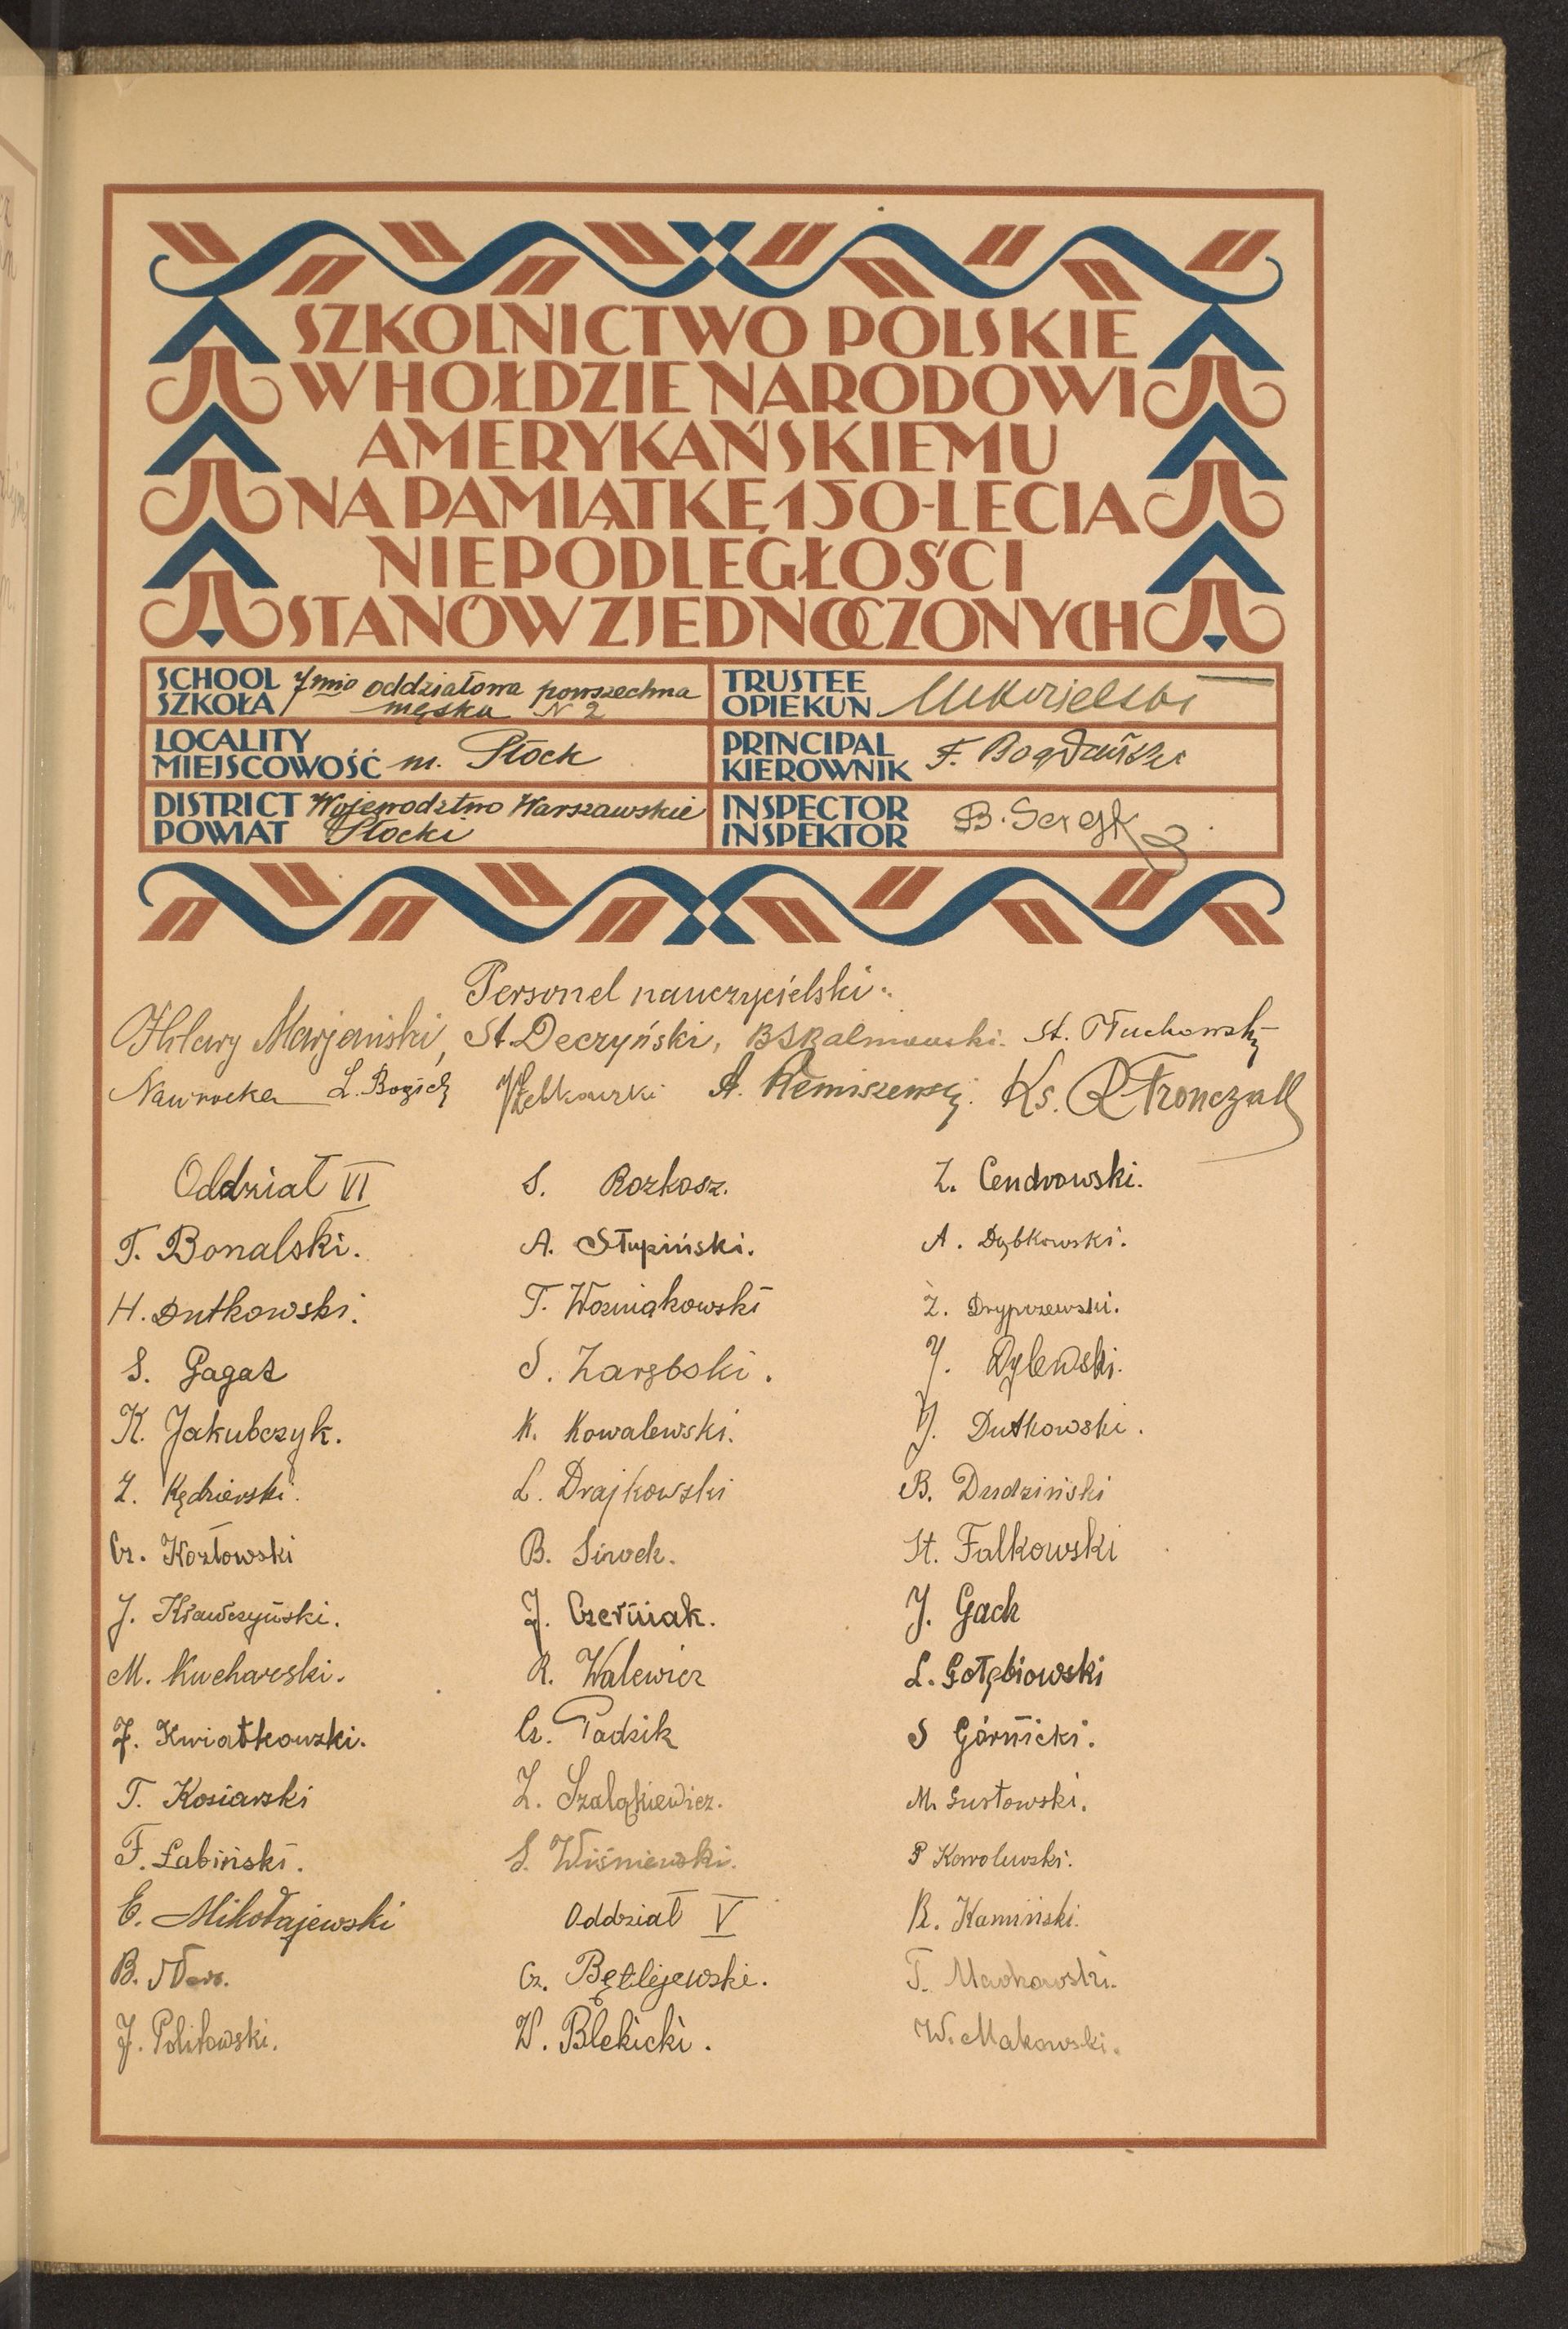 SZKOLNICTWO POLSKIE
W HOŁDZIE NARODOWI
AMERYKAŃSKIEMU
NA PAMIĄTKĘ 150-LECIA
NIEPODLEGŁOŚCI
STANÓW ZJEDNOCZONYCH
SCHOOL
SZKOŁA
7mio oddziałowa powszechna
męska N 2
TRUSTEE
OPIEKUN
LOCALITY
MIEJSCOWOŚĆ
m. Płock
PRINCIPAL
KIEROWNIK
F. Bogdański
DISTRICT
POWIAT
Województwo Warszawskie
Płocki
INSPECTOR
INSPEKTOR
B.
Personel nauczycielski
Marjański, St. Deczyński, St. Tłuchowski
Nawrocka L. A. Remiszewski. Ks. R Fronczak
Oddział VI
T. Bonalski.
H. Dutkowski.
S. Gagat
K. Jakubczyk.
Z. Kędzierski.
Cz. Kozłowski
J. Krawczyński.
M. Kucharski.
J. Kwiatkowski.
T. Kosiarski
F. Łabiński.
E. Mikołajewski
B.
J. Politowski.
S. Rozkosz.
A. Słupiński.
T. Woźniakowski
S. Zarębski.
K. Kowalewski.
L. Drajkowski
B. Sirock.
J. Czerniak.
R. Walewicz
Cz. Padzik
Z. Szalqkiewicz.
S. Wiśniewski.
Oddział V
Cz. Bętlejewski.
W. Blekicki.
Z. Cendrowski.
A. Dąbkowski.
Z.
J. Dylewski.
J. Dutkowski.
B. Dudziński
St. Falkowski
J. Gach
L. Gołębiowski
S Górnicki.
M. Gustowski.
P Kowolewski.
R. Kamiński.
T.
W. Makowski.